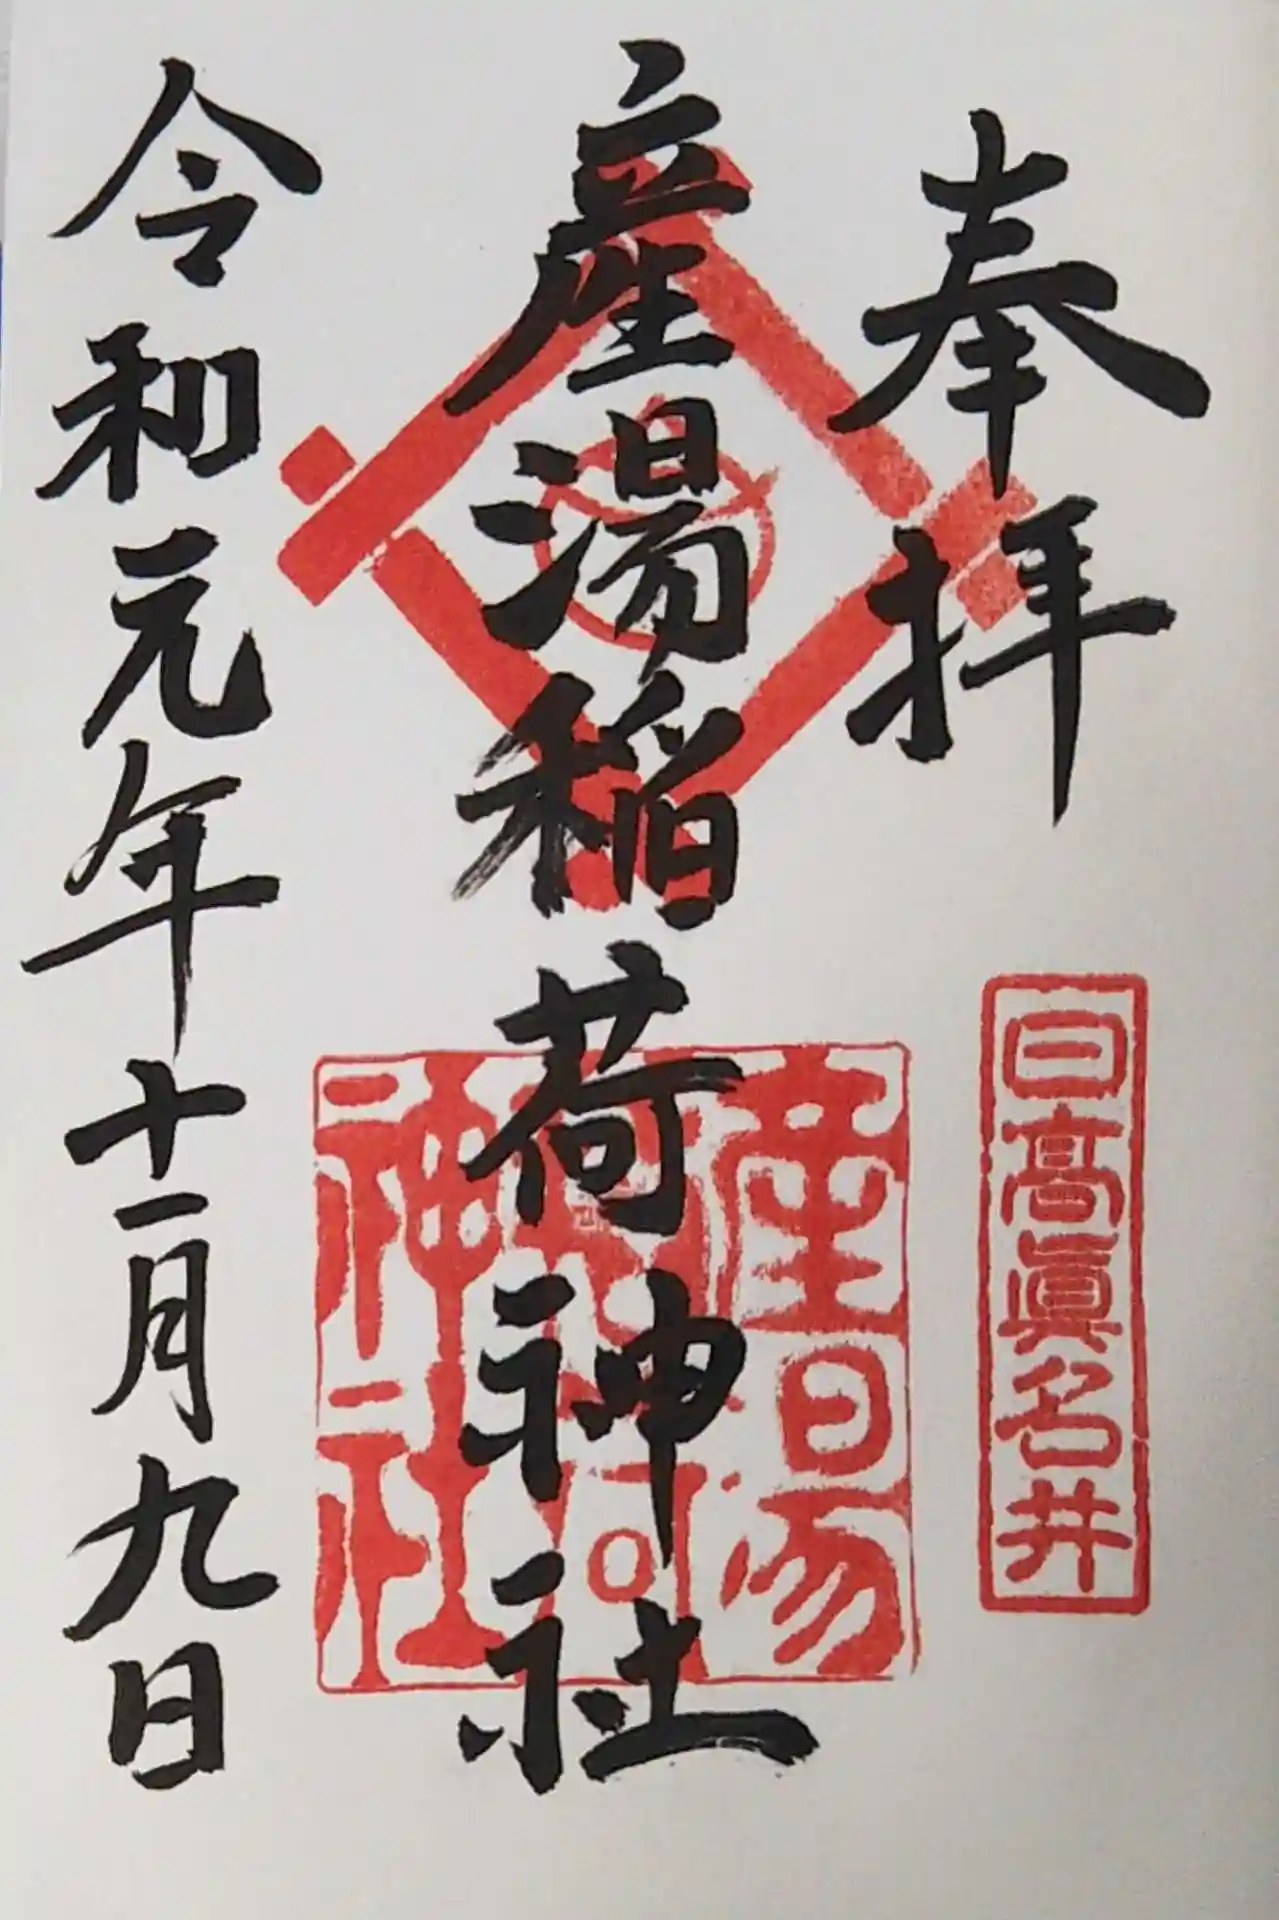 奉拝
日髙眞名井
産湯稲荷神社
産湯稲荷神社
令和元年十一月九日